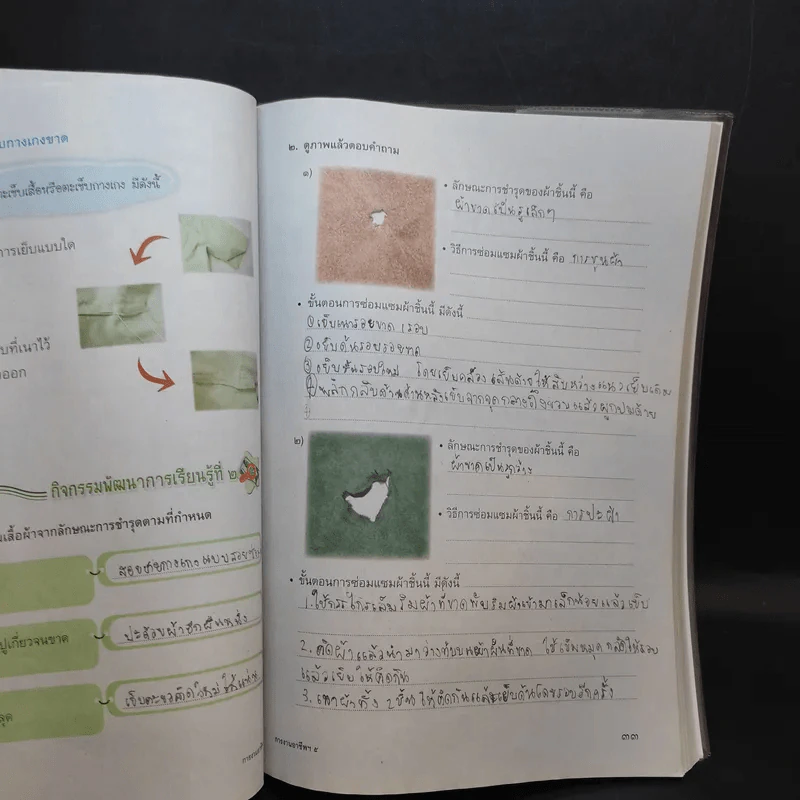 บกางเกงขาด
ะเข็บเสื้อหรือตะเข็บกางเกง มีดังนี้
การเย็บแบบใด
บที่เนาไว้
ออก
กิจกรรมพัฒนาการเรียนรู้ที่ ๒
เสื้อผ้าจากลักษณะการชำรุดตามที่กำหนด
สอยชายกางเกงแบบสอย
ปูเกี่ยวจนขาด
ปะด้วยผ้าอีกผืนหนึ่ง
ลุด
เย็บตะขอติดใหม่ให้แน่น
การงานอาชี
๒. ดูภาพแล้วตอบคำถาม
๑)
• ลักษณะการชำรุดของผ้าชิ้นนี้ คือ
ผ้าขาดเป็นรูเล็กๆ
• วิธีการซ่อมแซมผ้าชิ้นนี้ คือ การชุนผ้า
• ขั้นตอนการซ่อมแซมผ้าชิ้นนี้ มีดังนี้
① เย็บเนารอยขาด 1 รอบ
② เย็บด้นรอบรอยขาด
③ เย็บด้นรอบใหม่ โดยเย็บคล้องเส้นด้ายให้สับหว่างแนวเย็บเดิม
④ พลิกกลับด้านด้านหลังเย็บจากจุดกลาง แล้วผูกปมด้าย
๒)
• ลักษณะการชำรุดของผ้าชิ้นนี้ คือ
ผ้าขาดเป็นรูกว้าง
• วิธีการซ่อมแซมผ้าชิ้นนี้ คือ การปะผ้า
• ขั้นตอนการซ่อมแซมผ้าชิ้นนี้ มีดังนี้
1. ใช้กรรไกรเล็มริมผ้าที่ขาด พับริมผ้าเข้ามาเล็กน้อยแล้วเย็บ
2. ตัดผ้าแล้วนำมาวางทับบนผ้าผืนที่ขาด ใช้เข็มหมุดกลัดให้รอบ
แล้วเย็บให้ติดกัน
3. เนาผ้าทั้ง 2 ชิ้น ให้ติดกันแล้วเย็บด้นโดยรอบอีกครั้ง
การงานอาชีพฯ ๕
๓๓